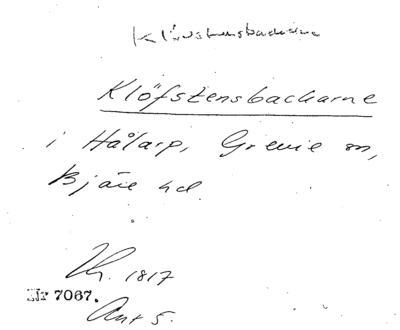 Klövstensbackarne
Klöfstensbackarne
i Hålarp, Grevie sn,
Bjäre hd
Kr. 1817
Nr 7067.
Ant 5.